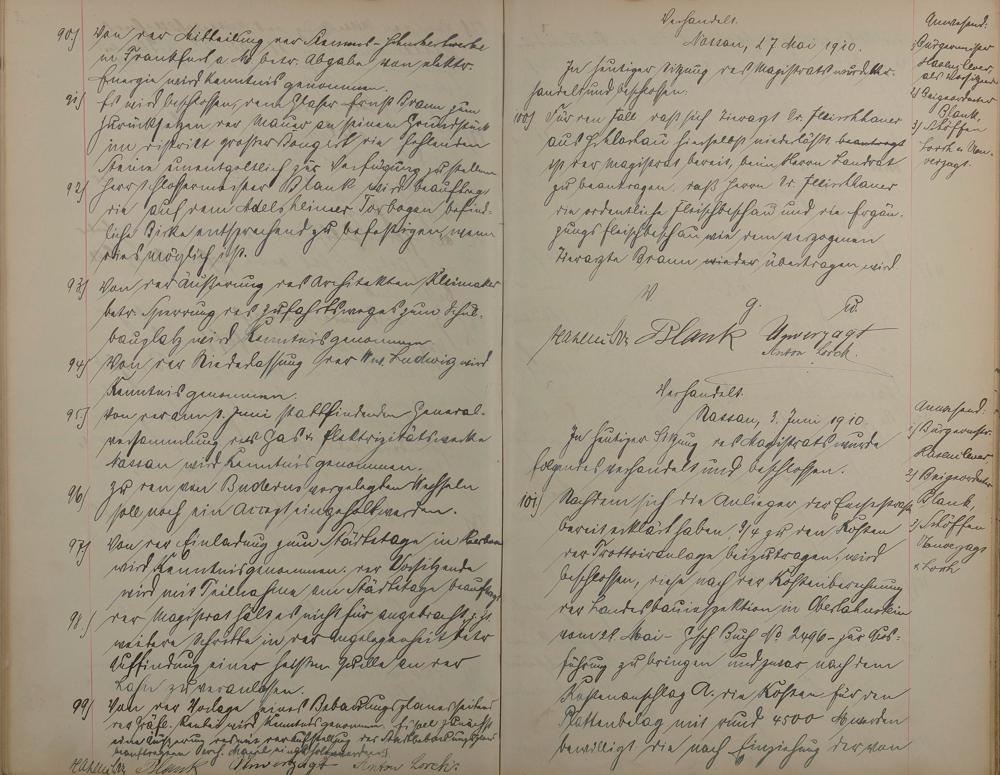 90) Von der Mitteilung der Kommunal-
in Frankfurt a M. betr. Abgabe von elektr.
Energie wird Kenntnis genommen.
91) Es wird beschlossen, dem Glaser Ernst Braun zum
Zurücksetzen der Mauer an seinem Grundstück
im Distrikt großer Bongert die fehlenden
Steine unentgeltlich zur Verfügung zu stellen
92) Herr Schlossermeister Blank wird beauftragt
die auf dem Adelsheimer Torbogen befind-
liche Birke entsprechend zu befestigen, wenn
dies möglich ist.
93) Von der Äußerung des Architekten Kleimaker
betr. Sperrung des Zufahrtsweges zum Schul-
bauplatz wird Kenntnis genommen
94) Von der Niederlassung der Ww. Ludwig wird
Kenntnis genommen.
95) Von der am Juni stattfindenden General-
versammlung des Gas & Elektrizitätswerke
Nassau wird Kenntnis genommen.
96) Zu den von Buderus vorgelegten Wechseln
soll noch ein eingeholt werden.
97) Von der Einladung zum Städtetage in Herborn
wird Kenntnis genommen. der Vorsitzende
wird mit Teilnahme am Städtetage beauftragt
98) der Magistrat hält es nicht für angebracht, z.Zt
weitere Schritte in der Angelegenheit betr
Auffindung einer heißen Quelle an der
Lahn zu veranlassen.
99) Von der Vorlage eines Bebauungsplanes seitens
der Gräfl. Rentei wird Kenntnis genommen. Es soll zunächst
eine Äußerung des mit der Aufstellung des Stadtbebauungsplans
beauftragten eingeholt werden
Hasenclever Blank Unverzagt Anton Lorch.
Verhandelt.
Nassau, 27 Mai 1910.
In heutiger Sitzung des Magistrats wurde ver-
handelt und beschlossen:
100) Für den Fall daß sich Tierarzt Dr. Fleischhauer
aus hierselbst niederläßt beantragt
ist der Magistrat bereit, beim Herrn Landrat
zu beantragen, daß Herrn Dr. Fleischhauer
die ordentliche Fleischbeschau und die Ergän-
zungsfleischbeschau wie dem verzogenen
Tierarzte Braun wieder übertragen wird
V. g. u.
Hasenclever Blank Unverzagt
Anton Lorch.
Anwesend:
1) Bürgermeister
Hasenclever
als Vorsitzender
2) Beigeordneter
Blank,
3) Schöffen
Lorch u. Un-
verzagt.
Verhandelt.
Nassau, 3. Juni 1910.
In heutiger Sitzung des Magistrats wurde
folgendes verhandelt und beschlossen.
101) Nachdem sich die Anlieger der Emserstraße
bereit erklärt haben, 3/4 zu den Kosten
der Trottoiranlage beizutragen, wird
beschlossen, diese nach der Kostenberechnung
der Landesbauinspektion in Oberlahnstein
vom 28 Mai - Buch No 2496 - zur Aus-
führung zu bringen und zwar nach dem
Kostenanschlag A. die Kosten für den
Plattenbelag mit rund 4500 M werden
bewilligt die nach Einziehung der von
Anwesend.
1) Bürgermstr.
Hasenclever
2) Beigeordneter
Blank,
3) Schöffen
Unverzagt
u. Lorch